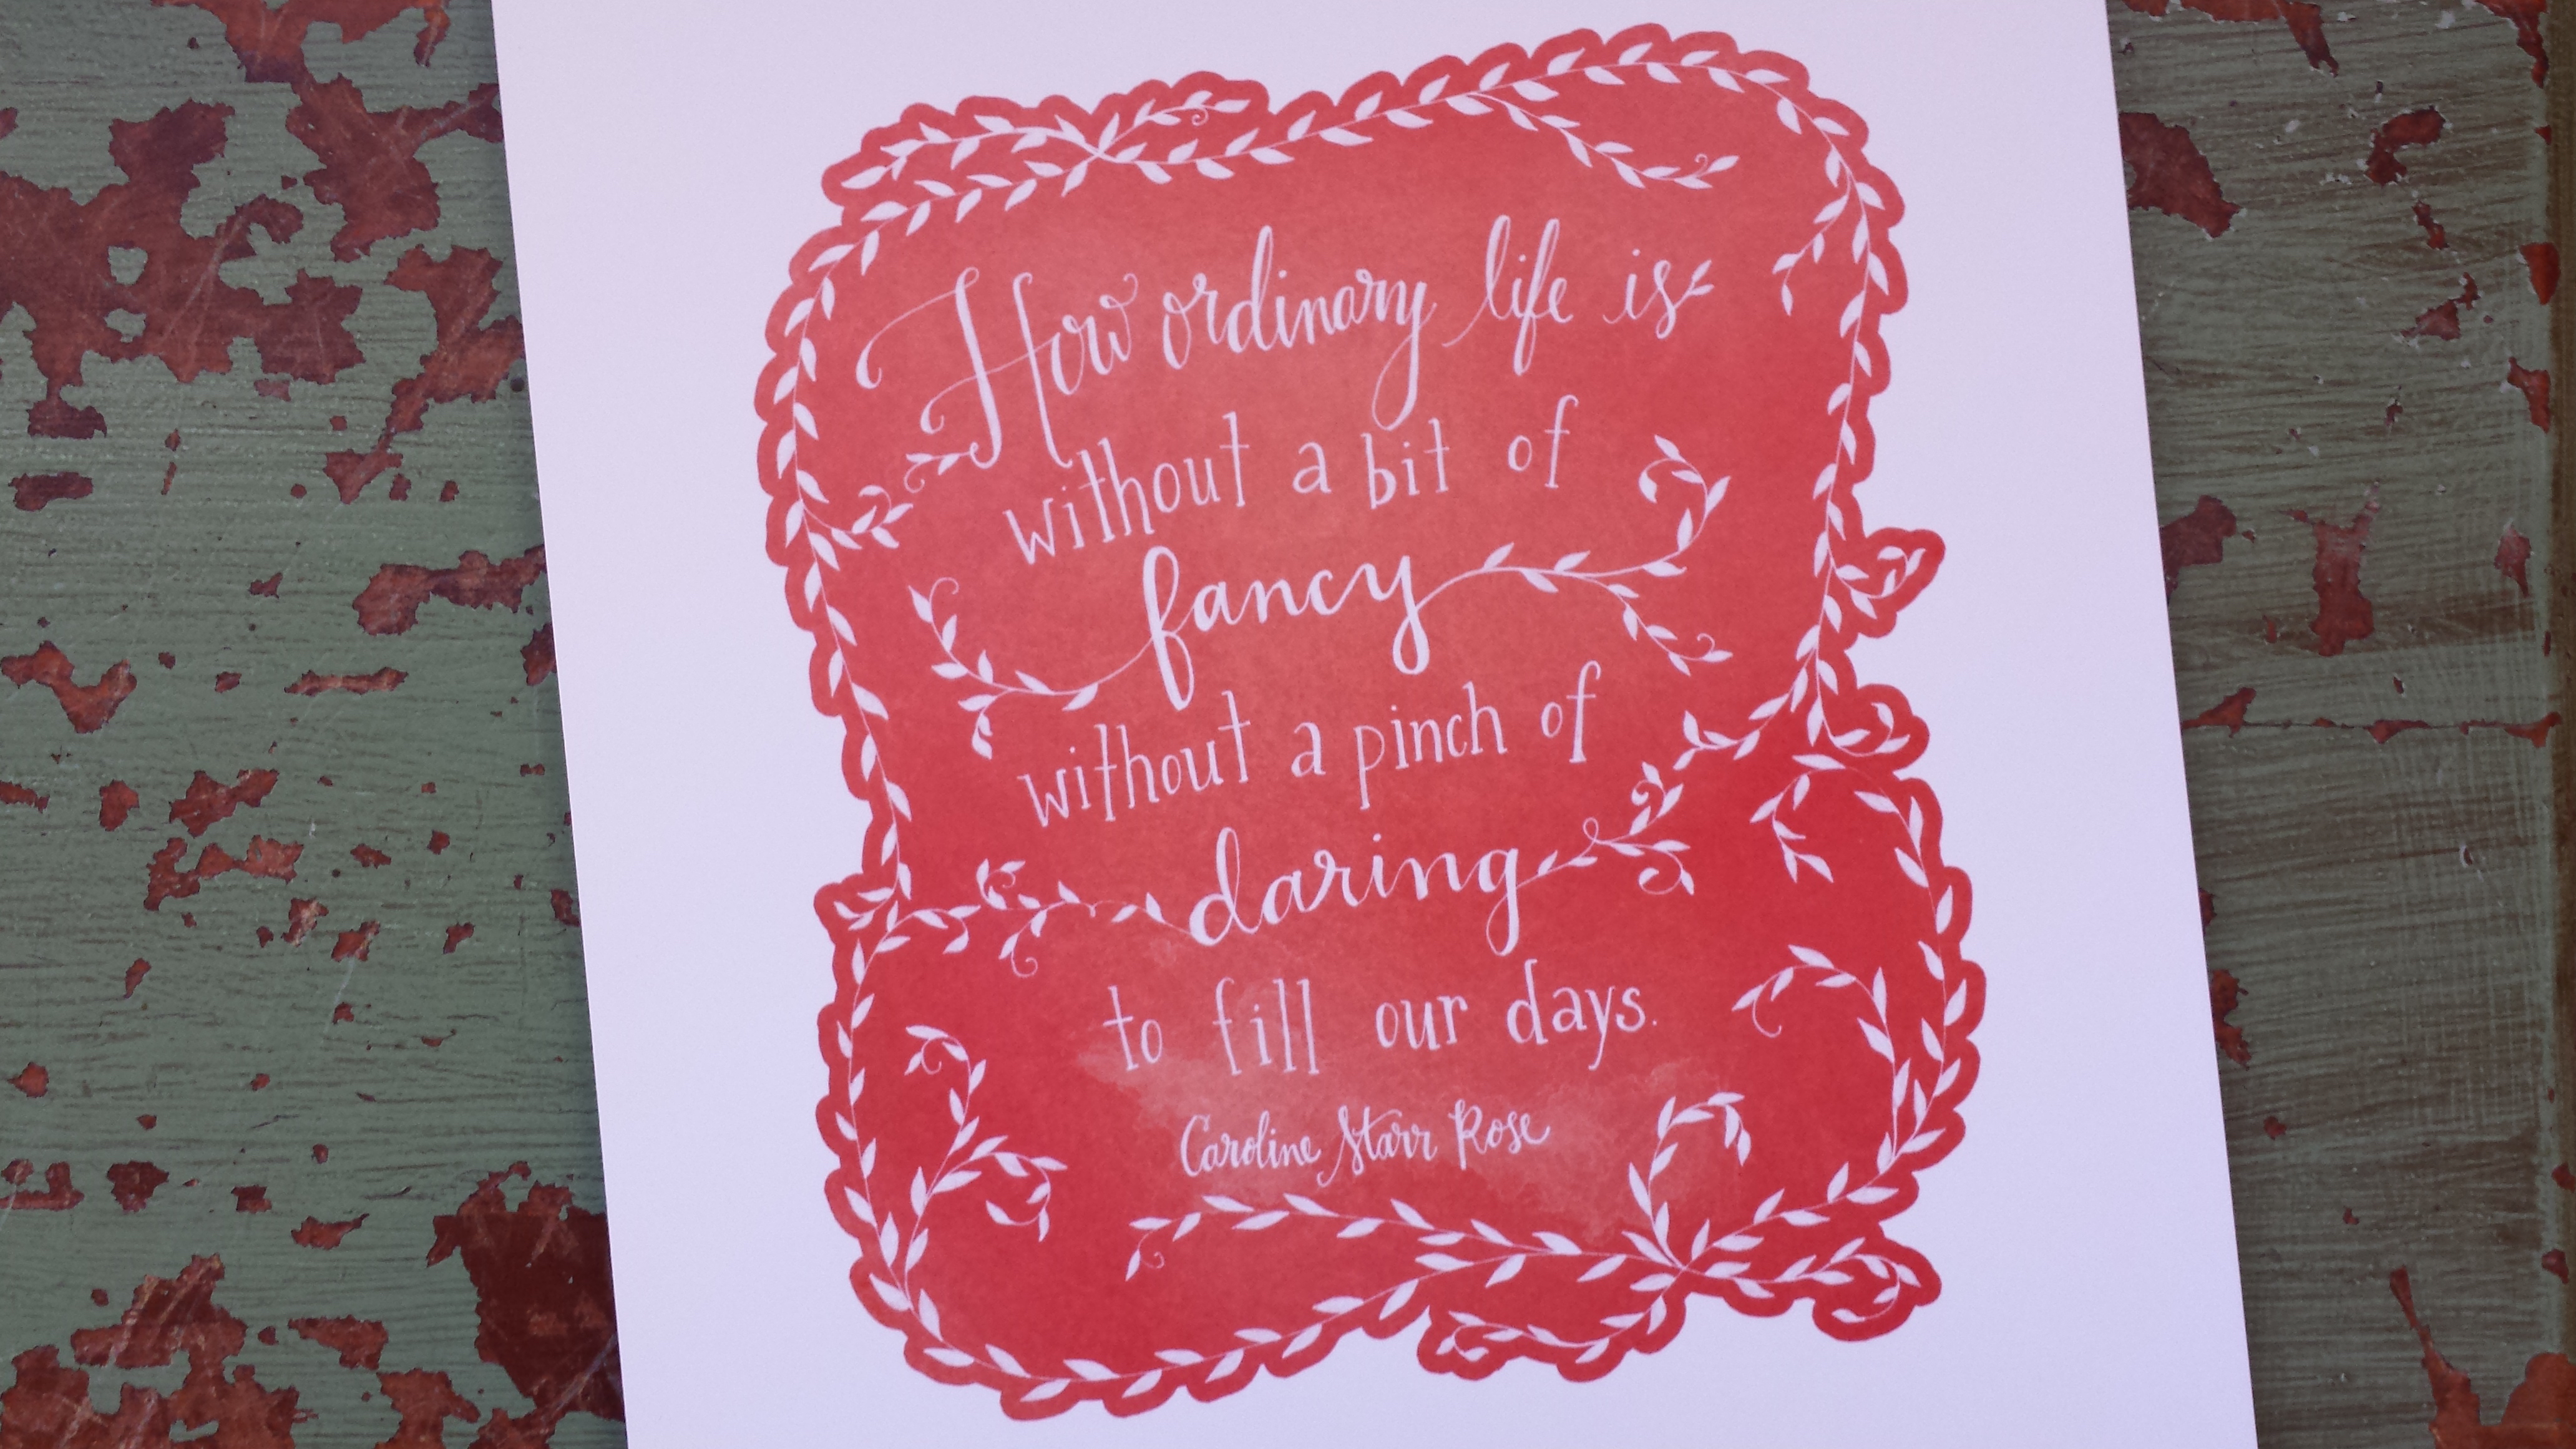 How ordinary life is
without a bit of
fancy
without a pinch of
daring
to fill our days.
Caroline Starr Rose